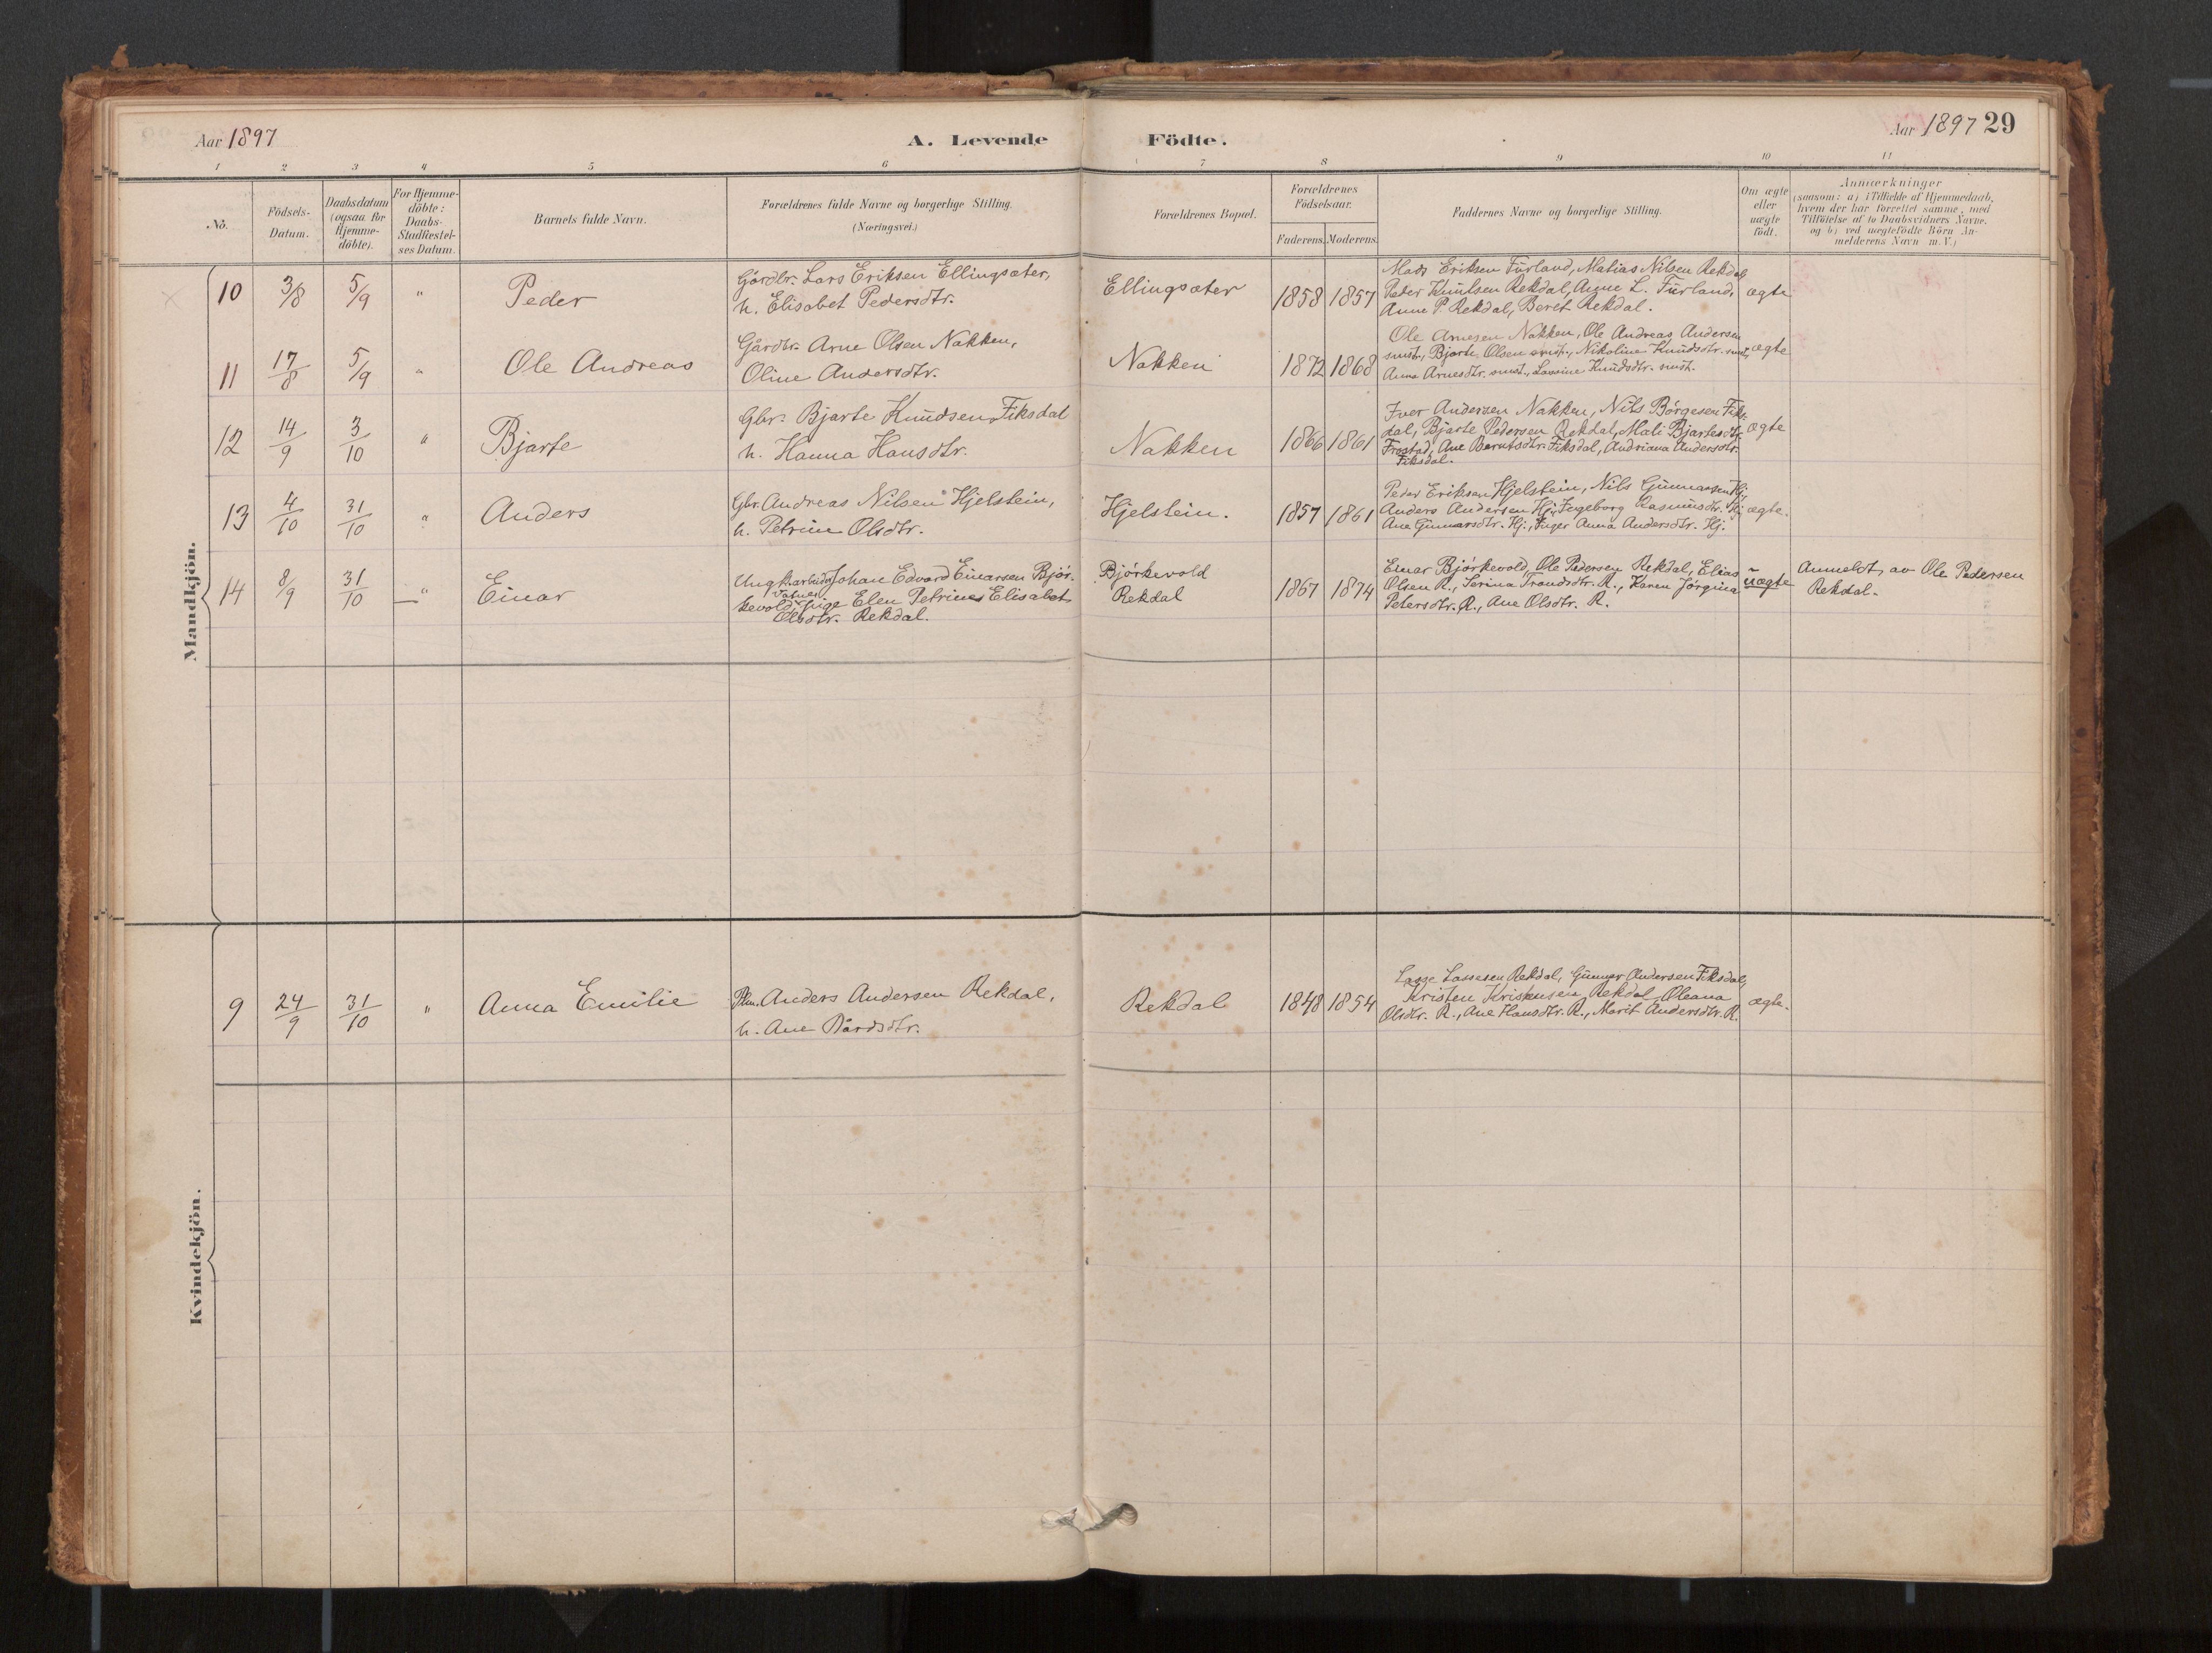 Aar 1897
A. Levende Födte.
Aar 1897 29
1 2 3 4 5 6 7 8 9 10 11
No.
Födsels-
Datum.
Daabsdatum
(ogsaa for
Hjemme-
döbte).
For Hjemme-
döbte:
Daabs-
Stadfæstel-
ses Datum.
Barnets fulde Navn.
Forældrenes fulde Navne og borgerlige Stilling.
(Næringsvei.)
Forældrenes Bopæl.
Forældrenes
Födselsaar.
Faderens. Moderens.
Faddernes Navne og borgerlige Stilling.
Om ægte
eller
uægte
födt.
Anmærkninger
(saasom: a) i Tilfælde af Hjemmedaab,
hvem der har forrettet samme, med
Tilföielse af to Daabsvidners Navne.
og b) ved uægtefödte Börn An-
melderens Navn m. V.)
Mandkjön.
10 3/8 5/9 " Peder
Gårdbr. Lars Eriksen Ellingsæter,
h. Elisabet Pedersdtr.
Ellingsæter 1858 1857
Mads Eriksen Fürland, Matias Nilsen Rekdal
Peder Knutsen Rekdal, Anne L. Fürland,
Anne P. Rekdal, Beret Rekdal.
ægte
11 17/8 5/9 " Ole Andreas
Gårdbr. Arne Olsen Nakken,
Oline Andersdtr.
Nakken 1872 1868
Ole Arnesen Nakken, Ole Andreas Andersen
smst., Bjarte Olsen smst., Nikoline Knudsdtr. smst.,
Anna Arnesdtr. smst., Lassine Knudsdtr. smst.
ægte
12 14/9 3/10 " Bjarte
Gbr. Bjarte Knudsen Fiksdal
h. Hanna Hansdtr.
Nakken 1866 1861
Iver Andersen Nakken, Nils Börgesen Fiks-
dal, Bjarte Pedersen Rekdal, Mali Bjartesdtr.
Frostad, Ane Berntsdtr. Fiksdal, Andriana Andersdtr.
Fiksdal.
ægte
13 4/10 31/10 " Anders
Gbr. Andreas Nilsen Hjelstein,
h. Petrine Olsdtr.
Hjelstein. 1857 1861
Peder Eriksen Hjelstein, Nils Gunnarsen Hj.,
Anders Andersen Hj., Ingeborg Rasmusdtr. Hj.
Ane Gunnarsdtr. Hj., Inger Anna Andersdtr. Hj.
ægte.
14 8/9 31/10 " Einar
Ungk. arbeider Johan Edvard Einarsen Björ-
kevold, Pige Elen Petrine Elisabet
Olsdtr. Rekdal.
Björkevold
Rekdal
1867 1874
Einar Björkevold, Ole Pedersen Rekdal, Elias
Olsen R., Serina Trondsdtr. R., Karen Jörgina
Petersdtr. R., Ane Olsdtr. R.
uægte
Anmeldt av Ole Pedersen
Rekdal.
Kvindekjön.
9 24/9 31/10 " Anna Emilie
Anders Andersen Rekdal,
h. Ane Bårdsdtr.
Rekdal 1848 1854
Lasse Lassesen Rekdal, Gunnar Andersen Fiksdal,
Kristen Kristensen Rekdal, Oleana
Olsdtr. R., Ane Hansdtr. R., Marit Andersdtr. R.
ægte.